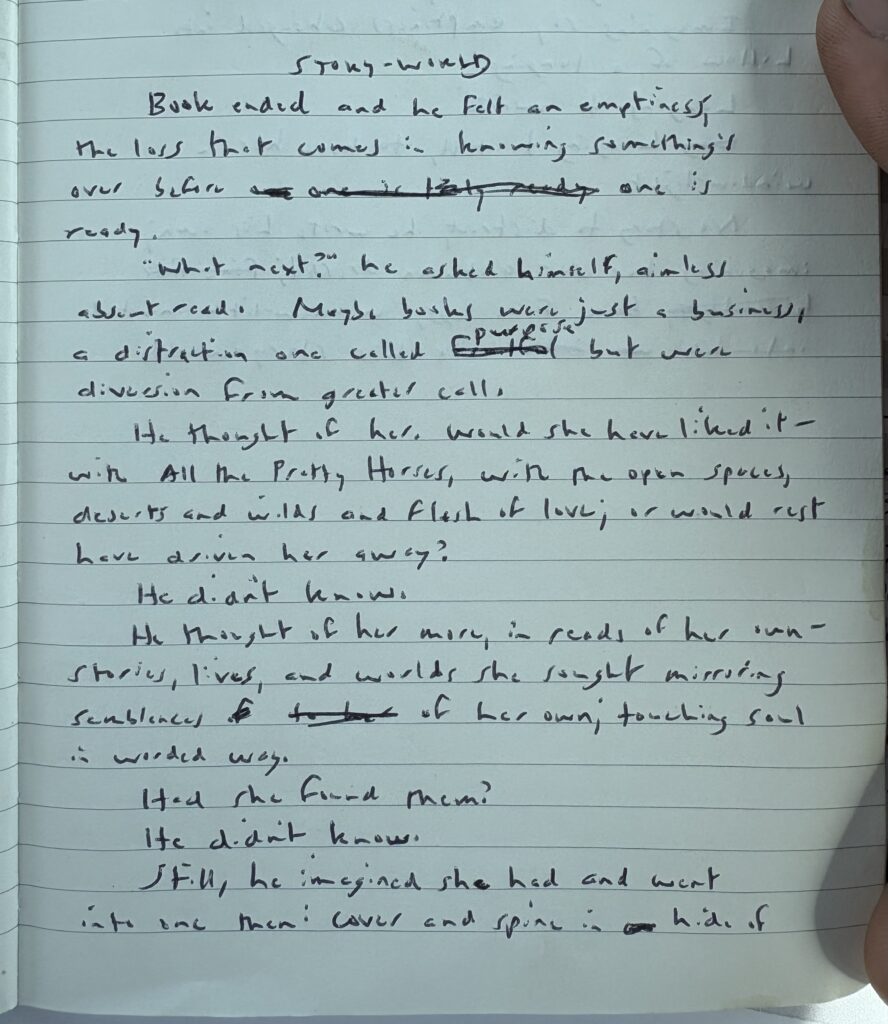 STORY-WORLD
Book ended and he felt an emptiness,
the loss that comes in knowing something's
over before one is
ready.
"What next?" he asked himself, aimless
absent read. Maybe books were just a business,
a distraction one called purpose but were
diversion from greater call.
He thought of her. Would she have liked it-
with All the Pretty Horses, with the open spaces,
deserts and wilds and flesh of love; or would rest
have driven her away?
He didn't know.
He thought of her more, in reads of her own-
stories, lives, and worlds she sought mirroring
semblences of her own; touching soul
in worded way.
Had she found them?
He didn't know.
Still, he imagined she had and went
into one then: cover and spine in hide of